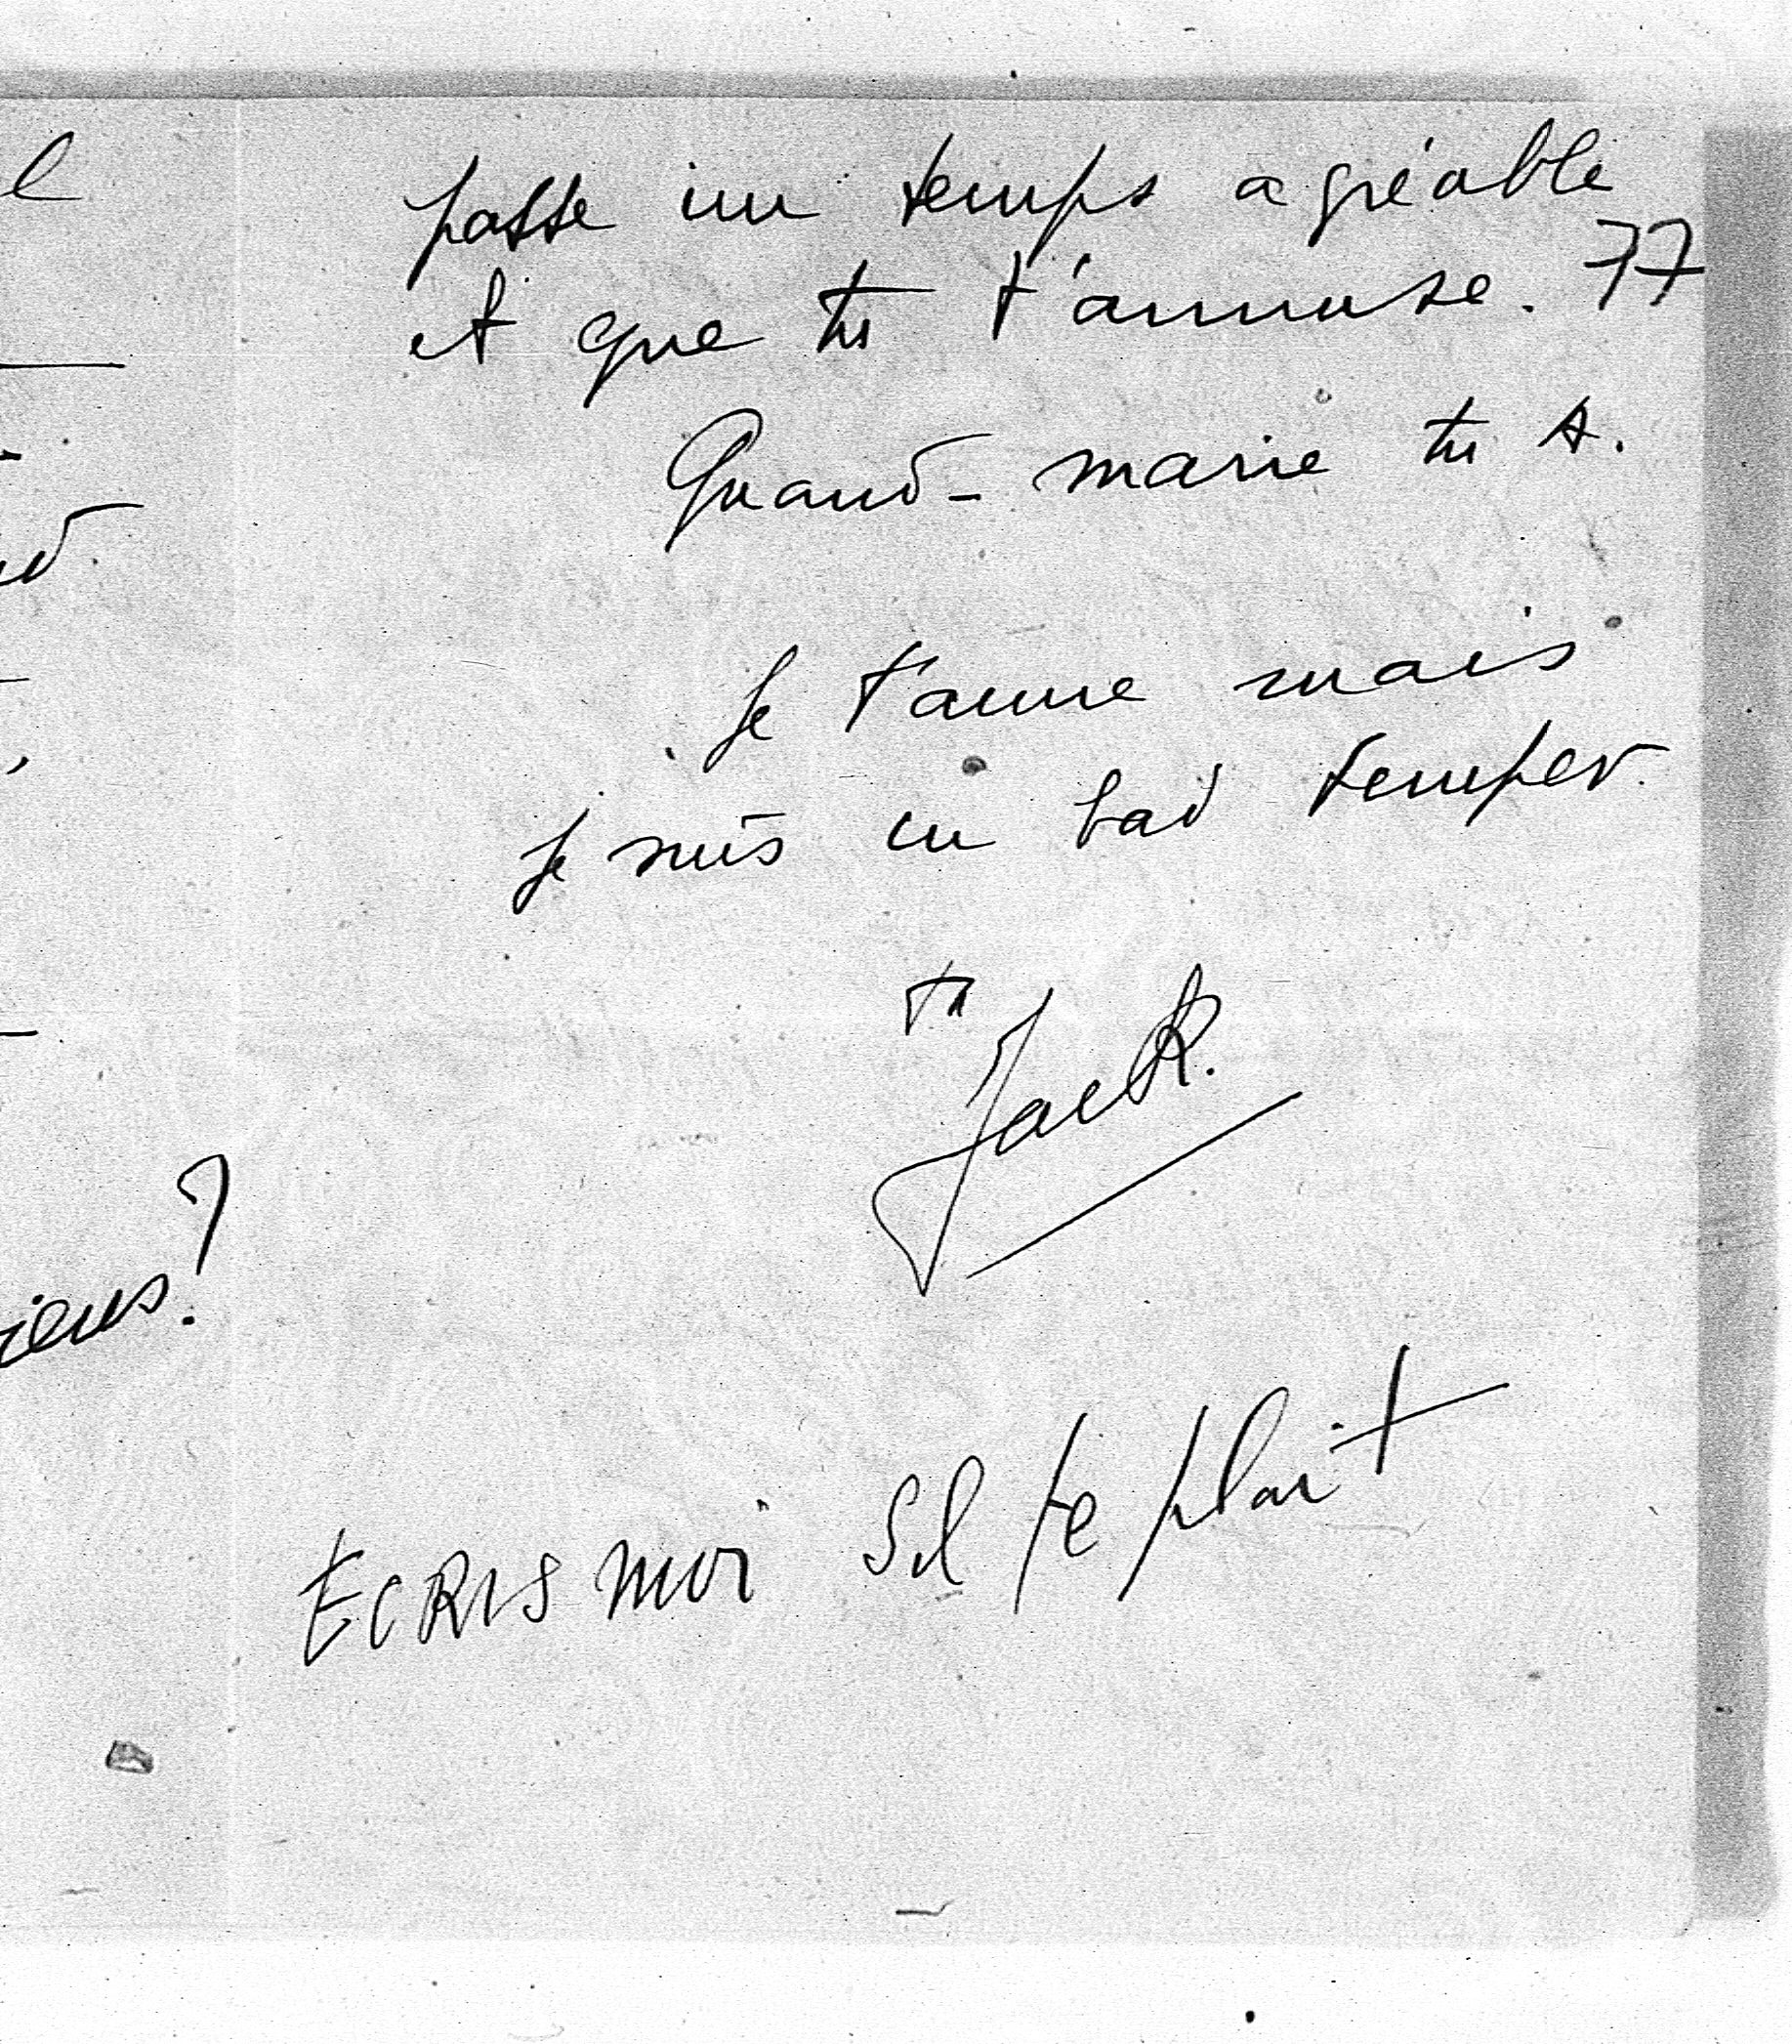 passe un temps agréable
et que tu t'amuse. 77
Quand-marie tu A.
Je t'aime mais
Je suis in bad temper.
ta
Jack.
ECRIS moi Sil te plait
iens?